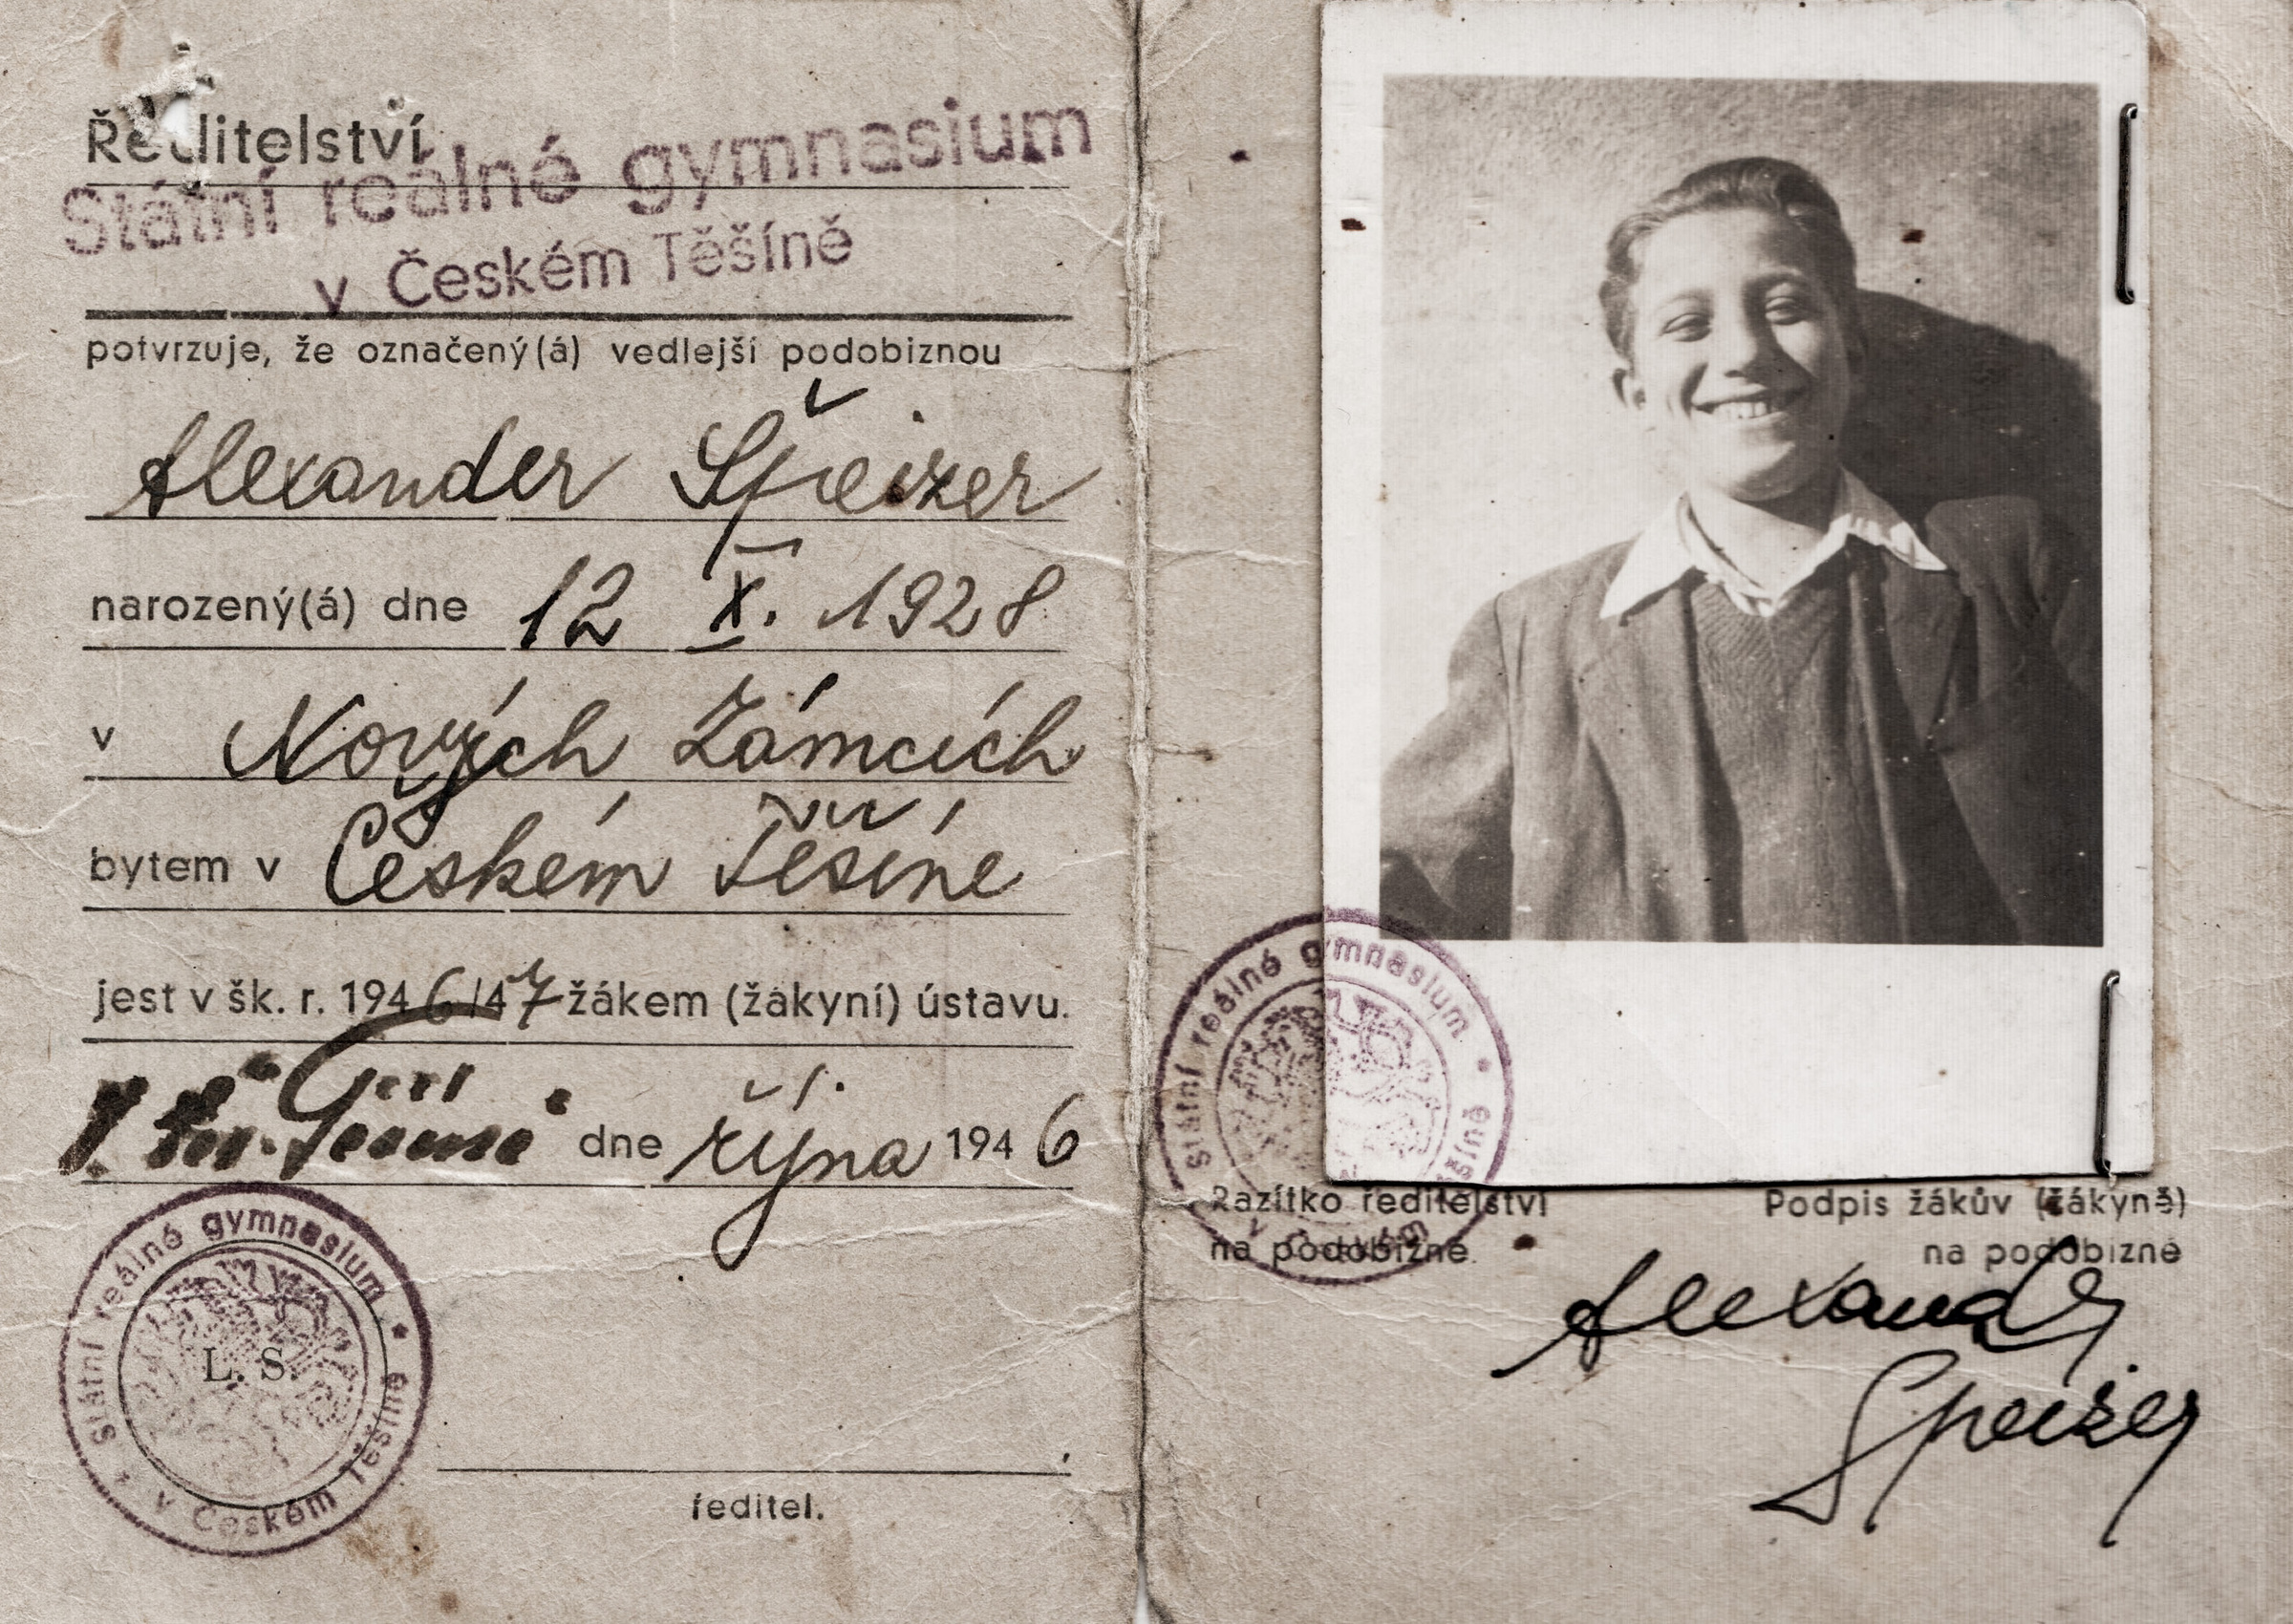 Ředitelství
Státní reálné gymnasium
v Českém Těšíně
potvrzuje, že označený(á) vedlejší podobiznou
Alexander Špeizer
narozený(á) dne 12 X. 1928
v Nových Zámcích
bytem v Českém Těšíně
jest v šk. r. 1946/47 žákem (žákyní) ústavu.
dne října 1946
Státní reálné gymnasium
v Českém Těšíně
L. S.
ředitel.
Státní reálné gymnasium
Razítko ředitelství
na podobizně.
Podpis žákův (žákyně)
na podobizně
Alexander
Speizer